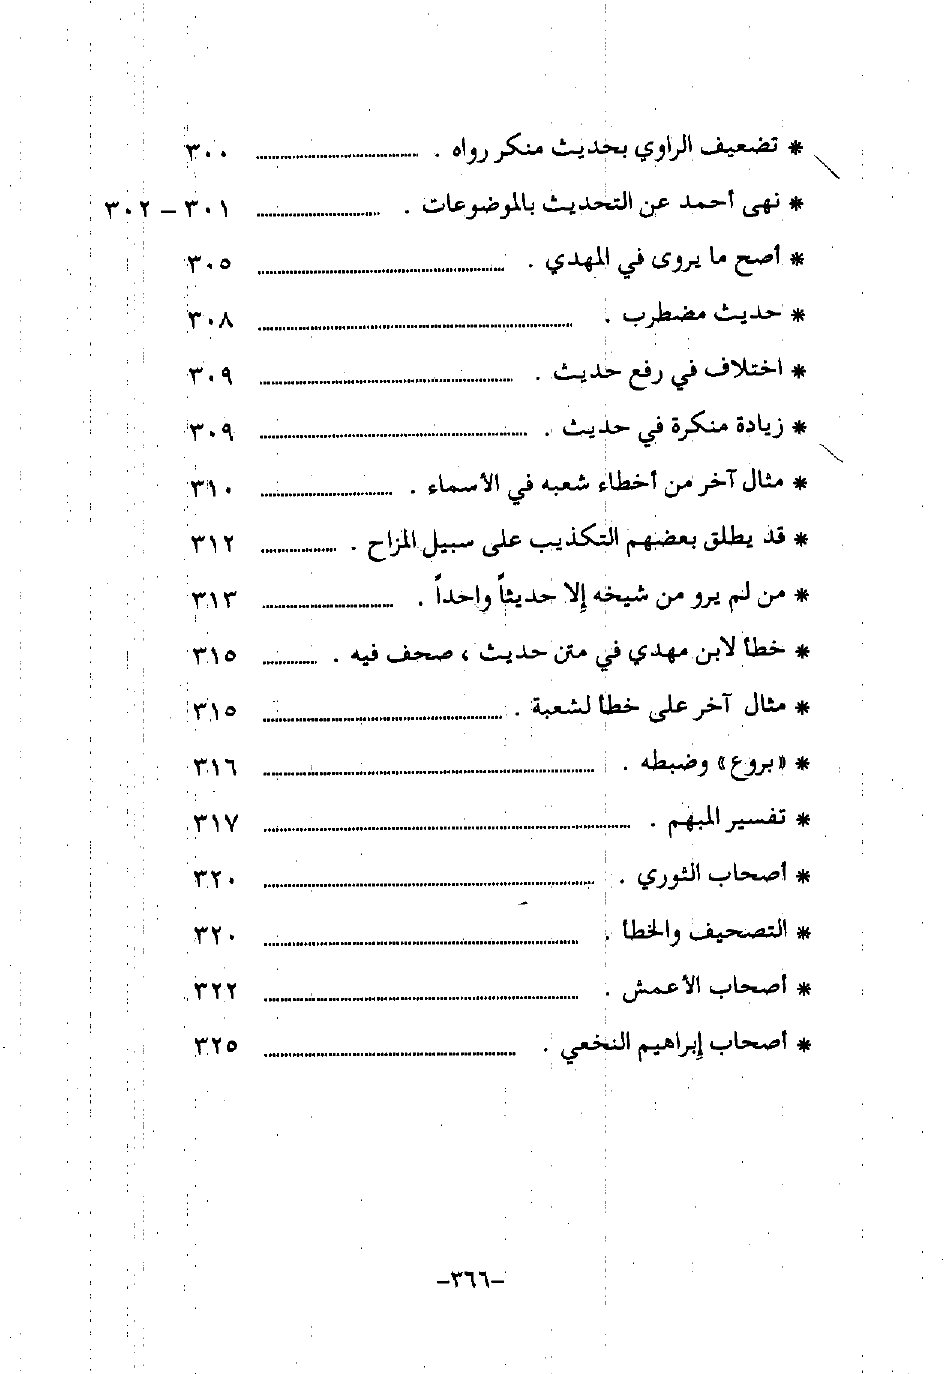 * تضعيف الراوي بحديث منكر رواه . ٣٠٠
* نهى أحمد عن التحديث بالموضوعات . ٣٠١ – ٣٠٢
* أصح ما يروى في المهدي . ٣٠٥
* حديث مضطرب . ٣٠٨
* اختلاف في رفع حديث . ٣٠٩
* زيادة منكرة في حديث . ٣٠٩
* مثال آخر من أخطاء شعبه في الأسماء . ٣١٠
* قد يطلق بعضهم التكذيب على سبيل المزاح . ٣١٢
* من لم يرو من شيخه إلا حديثاً واحداً . ٣١٣
* خطأ لابن مهدي في متن حديث ، صحف فيه . ٣١٥
* مثال آخر على خطأ لشعبة . ٣١٥
* «بروع» وضبطه . ٣١٦
* تفسير المبهم . ٣١٧
* أصحاب الثوري . ٣٢٠
* التصحيف والخطأ . ٣٢٠
* أصحاب الأعمش . ٣٢٢
* أصحاب إبراهيم النخعي . ٣٢٥
–٣٦٦–